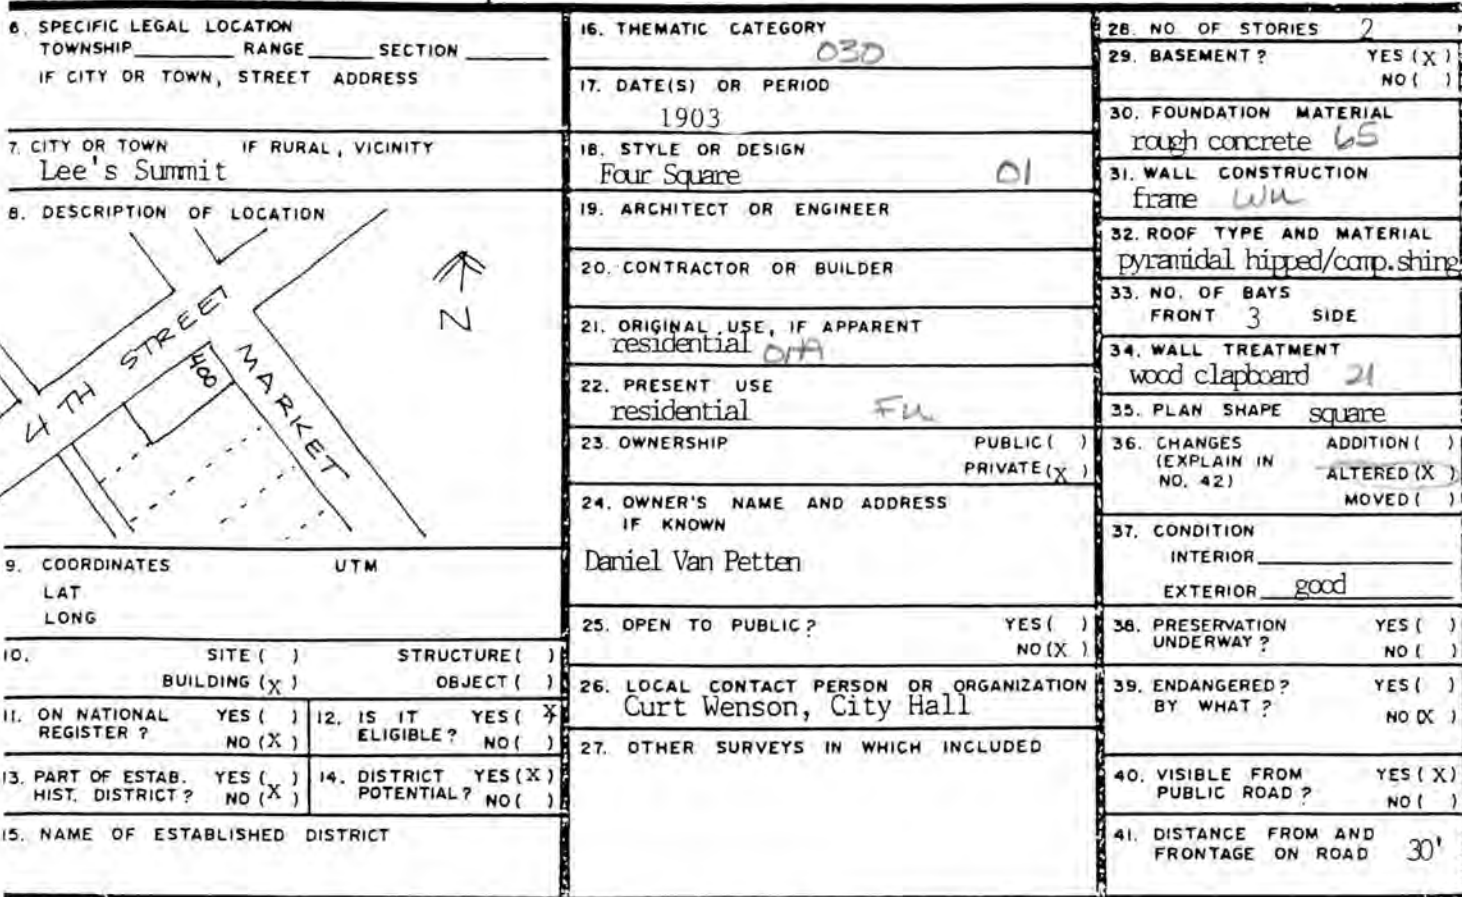 6. SPECIFIC LEGAL LOCATION
TOWNSHIP RANGE SECTION
IF CITY OR TOWN, STREET ADDRESS
7. CITY OR TOWN IF RURAL, VICINITY
Lee's Summit
8. DESCRIPTION OF LOCATION
4TH STREET
400
MARKET
N
9. COORDINATES UTM
LAT
LONG
10. SITE ( ) STRUCTURE ( )
BUILDING (X) OBJECT ( )
11. ON NATIONAL REGISTER ? YES ( ) NO (X)
12. IS IT ELIGIBLE? YES ( X NO ( )
13. PART OF ESTAB. HIST. DISTRICT ? YES ( ) NO (X)
14. DISTRICT POTENTIAL? YES (X) NO ( )
15. NAME OF ESTABLISHED DISTRICT
16. THEMATIC CATEGORY
030
17. DATE(S) OR PERIOD
1903
18. STYLE OR DESIGN
Four Square 01
19. ARCHITECT OR ENGINEER
20. CONTRACTOR OR BUILDER
21. ORIGINAL USE, IF APPARENT
residential 01A
22. PRESENT USE
residential
23. OWNERSHIP PUBLIC ( )
PRIVATE (X)
24. OWNER'S NAME AND ADDRESS
IF KNOWN
Daniel Van Petten
25. OPEN TO PUBLIC ? YES ( )
NO (X)
26. LOCAL CONTACT PERSON OR ORGANIZATION
Curt Wenson, City Hall
27. OTHER SURVEYS IN WHICH INCLUDED
28. NO. OF STORIES 2
29. BASEMENT ? YES (X)
NO ( )
30. FOUNDATION MATERIAL
rough concrete 65
31. WALL CONSTRUCTION
frame
32. ROOF TYPE AND MATERIAL
pyramidal hipped/comp.shing
33. NO. OF BAYS
FRONT 3 SIDE
34. WALL TREATMENT
wood clapboard 21
35. PLAN SHAPE square
36. CHANGES ADDITION ( )
(EXPLAIN IN ALTERED (X)
NO. 42) MOVED ( )
37. CONDITION
INTERIOR
EXTERIOR good
38. PRESERVATION YES ( )
UNDERWAY ? NO ( )
39. ENDANGERED ? YES ( )
BY WHAT ? NO (X )
40. VISIBLE FROM YES (X)
PUBLIC ROAD ? NO ( )
41. DISTANCE FROM AND
FRONTAGE ON ROAD 30'